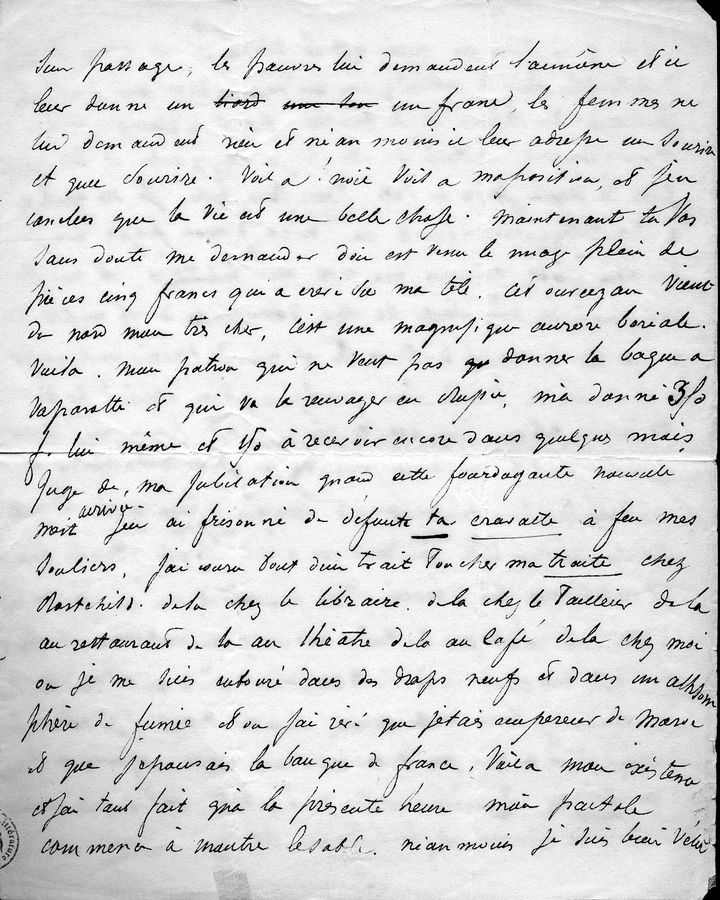 Sur passage, les pauvres lui demandent l'aumône et il
leur donne un ~~liard~~ ~~un sou~~ un franc, les femmes ne
lui demandent rien et néanmoins il leur adresse un sourire
et quel sourire. Voila! Voila ma position, et j'en
conclus que la vie est une belle chose. Maintenant tu vas
sans doute me demander d'où est venu le nuage plein de
pièces cinq francs qui a crevé sur ma tête. Cet ouragan vient
du nord mon tres cher, c'est une magnifique aurore boréale.
Voila. Mon patron qui ne veut pas donner la bague a
et qui va le en Russie, m'a donné 350
f. lui même et 150 à recevoir encore dans quelques mois,
Juge de, ma jubilation quand cette nouvelle
m'est arrivée j'en ai frisonné de défunte ta cravatte à feu mes
souliers, j'ai couru tout d'un trait toucher ma traite chez
Rostchild. de la chez le libraire. de la chez le Tailleur de la
au restaurant de la au théâtre de la au Café de la chez moi
ou je me suis entouré dans des draps neufs et dans un athsom
phère de fumée et ou j'ai rêvé que j'etais empereur de Maroc
et que j'epousais la banque de france. Voila mon existence
et j'ai tant fait qu'a la présente heure mon pactole
commence à montre le sable. néanmoins je suis bien vétu